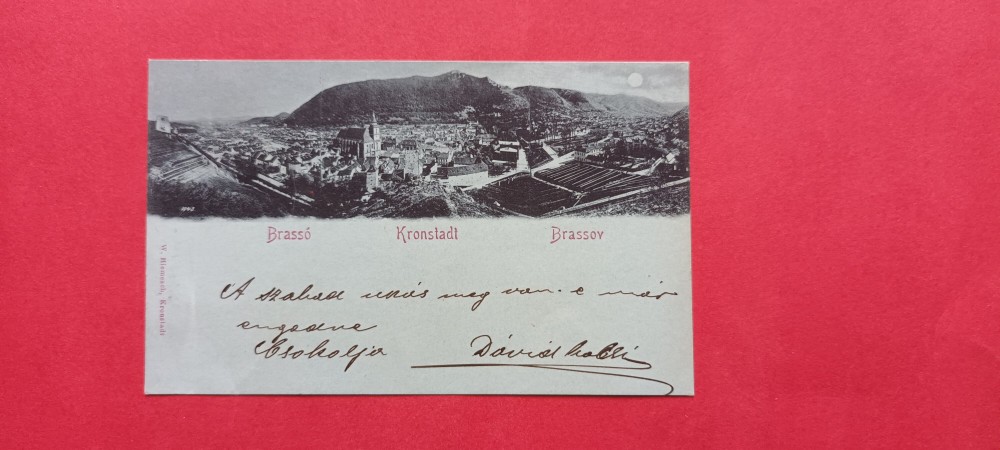 Brassó Kronstadt Brassov
W. Hiemesch, Kronstadt
A szabad utás meg van. e már
engedve
Csokolja Dávid